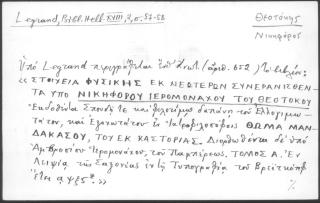 Legrand, Bibl. Hell. XVIII, 2, σ. 57-58
Θεοτόκης
Νικηφόρος
Ὑπό Legrand περιγράφεται ὑπ' (ἀριθ. 652) τό βιβλίον:
«ΣΤΟΙΧΕΙΑ ΦΥΣΙΚΗΣ ΕΚ ΝΕΩΤΕΡΩΝ ΣΥΝΕΡΑΝΙΣΘΕΝ
ΤΑ ΥΠΟ ΝΙΚΗΦΟΡΟΥ ΙΕΡΟΜΟΝΑΧΟΥ ΤΟΥ ΘΕΟΤΟΚΟΥ
Ἐκδοθέντα Σπουδῇ τε καί φιλοτίμῳ δαπάνῃ τοῦ Ἐλλογιμω-
τάτου, καί Ἐξοχωτάτου ἐν Ἰατροφιλοσόφοις ΘΩΜΑ ΜΑΝ-
ΔΑΚΑΣΟΥ, ΤΟΥ ΕΚ ΚΑΣΤΟΡΙΑΣ. Διορθωθέντα δέ ὑπό
Ἀμβροσίου Ἱερομονάχου, τοῦ Παμπέρεως. ΤΟΜΟΣ Α. Ἐν
Λειψίᾳ τῆς Σαξονίας ἐν τῇ Τυπογραφίᾳ τοῦ Βρεϊτκόπφ
Ἔτει αψξς.»